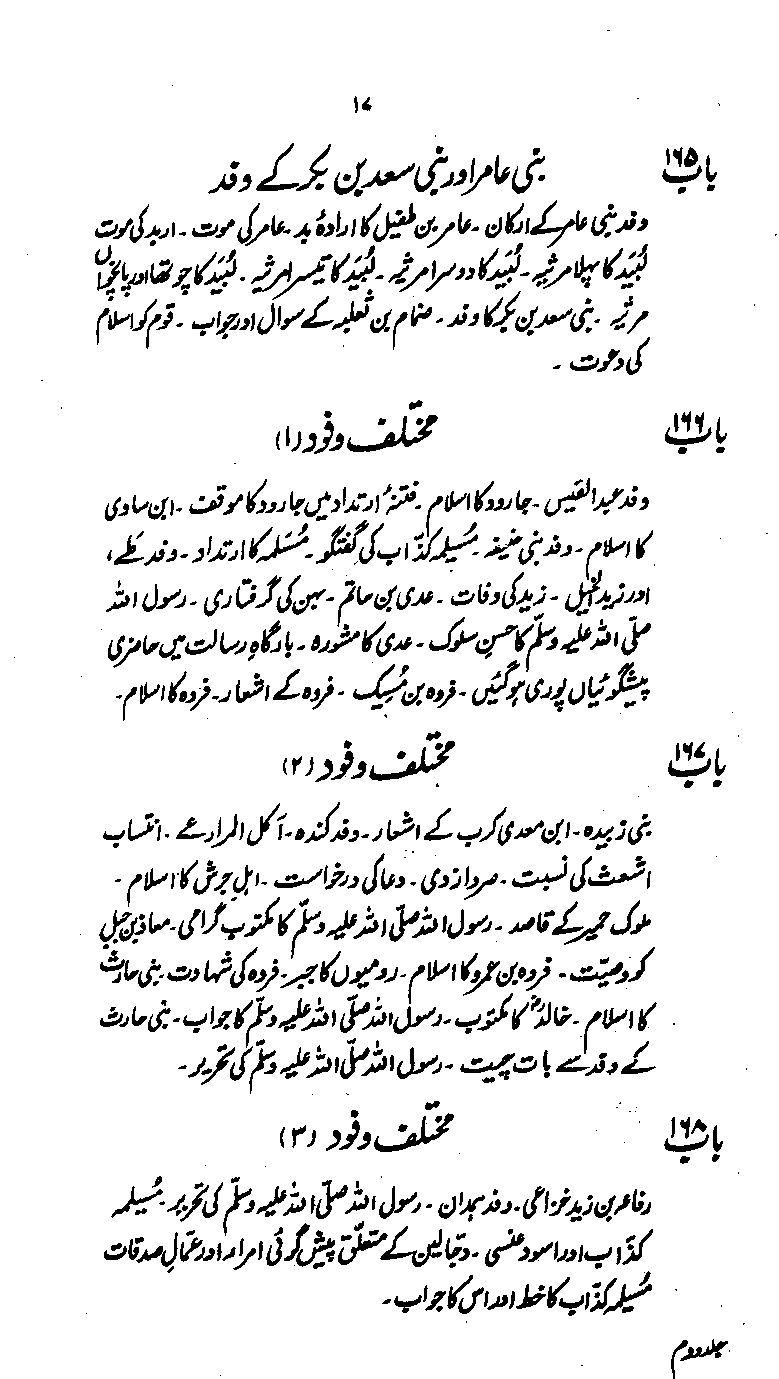 ۱۷
باب ۱۶۵
بنی عامر اور بنی سعد بن بکر کے وفد
وفد بنی عامر کے ارکان ۔ عامر بن طفیل کا ارادۂ بد ۔ عامر کی موت ۔ اربد کی موت
لُبَید کا پہلا مرثیہ ۔ لُبَید کا دوسرا مرثیہ ۔ لُبَید کا تیسرا مرثیہ ۔ لُبَید کا چوتھا اور پانچواں
مرثیہ ۔ بنی سعد بن بکر کا وفد ۔ ضمام بن ثعلبہ کے سوال اور جواب ۔ قوم کو اسلام
کی دعوت ۔
باب ۱۶۶
مختلف وفود (۱)
وفد عبدالقیس ۔ جارود کا اسلام ۔ فتنۂ ارتداد میں جارود کا موقف ۔ ابن ساوی
کا اسلام ۔ وفد بنی حنیفہ ۔ مُسَیلمہ کذّاب کی گفتگو ۔ مُسَلمہ کا ارتداد ۔ وفد طے ،
اور زید الخیل ۔ زید کی وفات ۔ عدی بن حاتم ۔ بہن کی گرفتاری ۔ رسول اللہ
صلّی اللہ علیہ وسلّم کا حسنِ سلوک ۔ عدی کا مشورہ ۔ بارگاہِ رسالت میں حاضری
پیشگوئیاں پوری ہوگئیں ۔ فروہ بن مُسَیک ۔ فروہ کے اشعار ۔ فروہ کا اسلام ۔
باب ۱۶۷
مختلف وفود (۲)
بنی زبیدہ ۔ ابن معدی کرب کے اشعار ۔ وفد کندہ ۔ آکل المرار سے ۔ انتساب
اشعث کی نسبت ۔ صرد ازدی ۔ دعا کی درخواست ۔ اہلِ جرش کا اسلام ۔
ملوک حمیر کے قاصد ۔ رسول اللہ صلّی اللہ علیہ وسلّم کا مکتوب گرامی ۔ معاذ بن جبل
کو وصیّت ۔ فروہ بن عمرو کا اسلام ۔ رومیوں کا جبر ۔ فروہ کی شہادت ۔ بنی حارث
کا اسلام ۔ خالدؓ کا مکتوب ۔ رسول اللہ صلّی اللہ علیہ وسلّم کا جواب ۔ بنی حارث
کے وفد سے بات چیت ۔ رسول اللہ صلّی اللہ علیہ وسلّم کی تحریر ۔
باب ۱۶۸
مختلف وفود (۳)
رفاعہ بن زید خزاعی ۔ وفد ہمدان ۔ رسول اللہ صلّی اللہ علیہ وسلّم کی تحریر ۔ مُسَیلمہ
کذّاب اور اسود عنسی ۔ دجّالین کے متعلّق پیش گوئی امراء اور عمّالِ صدقات
مُسَیلمہ کذّاب کا خط اور اس کا جواب ۔
جلد دوم